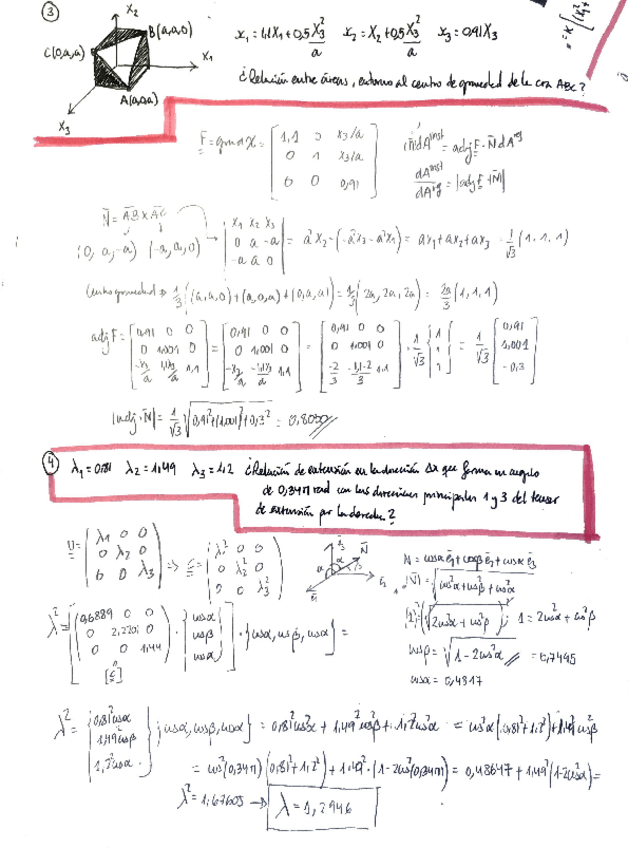 ③ x₂
B(a,a,0)
C(0,a,a)
x₁
A(a,0,a)
x₃
x₁ = 1,1X₁ + 0,5 X₃²/a   x₂ = X₂ + 0,5 X₃²/a   x₃ = 0,91X₃
¿Relación entre áreas, entorno al centro de gravedad de la cara ABC?
F = grad X = [1,1 0 x₃/a
0 1 x₃/a
0 0 0,91]
n̄dA^inst = adj F · N̄dA^ref
dA^inst/dA^ref = |adj F · N̄|
N̄ = AB × AC
(0, a, -a) (-a, a, 0) → |x₁ x₂ x₃
0 a -a
-a a 0| = a²x₂ - (-a²x₃ - a²x₁) = ax₁ + ax₂ + ax₃ 1/√3 (1, 1, 1)
Centro gravedad ⇒ 1/3 (a,a,0) + (a,0,a) + (0,a,a) = 1/3 (2a, 2a, 2a) = 2a/3 (1, 1, 1)
adj F = [0,91 0 0
0 1,001 0
1,1] = [0,91 0 0
0 1,001 0
1,1] = [0,91 0 0
0 1,001 0
-2/3 1,1] · 1/√3 {1
1
1} = 1/√3 [0,91
1,001
-0,3]
|adj · N̄| = 1/√3 √(0,91² + (1,001)² + 0,3²) = 0,8030
④ λ₁ = 0,81 λ₂ = 1,49 λ₃ = 1,2 ¿Relación de extensión en la dirección Δx que forma un ángulo
de 0,34π rad con las direcciones principales 1 y 3 del tensor
de extensión por la derecha?
U = (λ₁ 0 0
0 λ₂ 0
0 0 λ₃) ⇒ C = (λ₁² 0 0
0 λ₂² 0
0 0 λ₃²)
N = cosα ē₁ + cosβ ē₂ + cosα ē₃
|N̄| = √(cos²α + cos²β + cos²α)
1 = 2cos²α + cos²β
cosβ = √(1 - 2cos²α) = 0,7495
cosα = 0,4817
λ² = (0 0
0 2,2201 0
0 0 1,44) · {cosα
cosβ
cosα} · {cosα, cosβ, cosα} =
[C]
λ² = {0,81²cosα
1,49²cosβ
1,2²cosα} {cosα, cosβ, cosα} = 0,81²cos²α + 1,49²cos²β + 1,2²cos²α = cos²α (0,81² + 1,2²) + 1,49²cos²β
= cos²(0,34π) (0,81² + 1,2²) + 1,49² · (1 - 2cos²(0,34π)) = 0,48647 + 1,49² (1 - 2cos²α) =
λ² = 1,67603 → λ = 1,2946